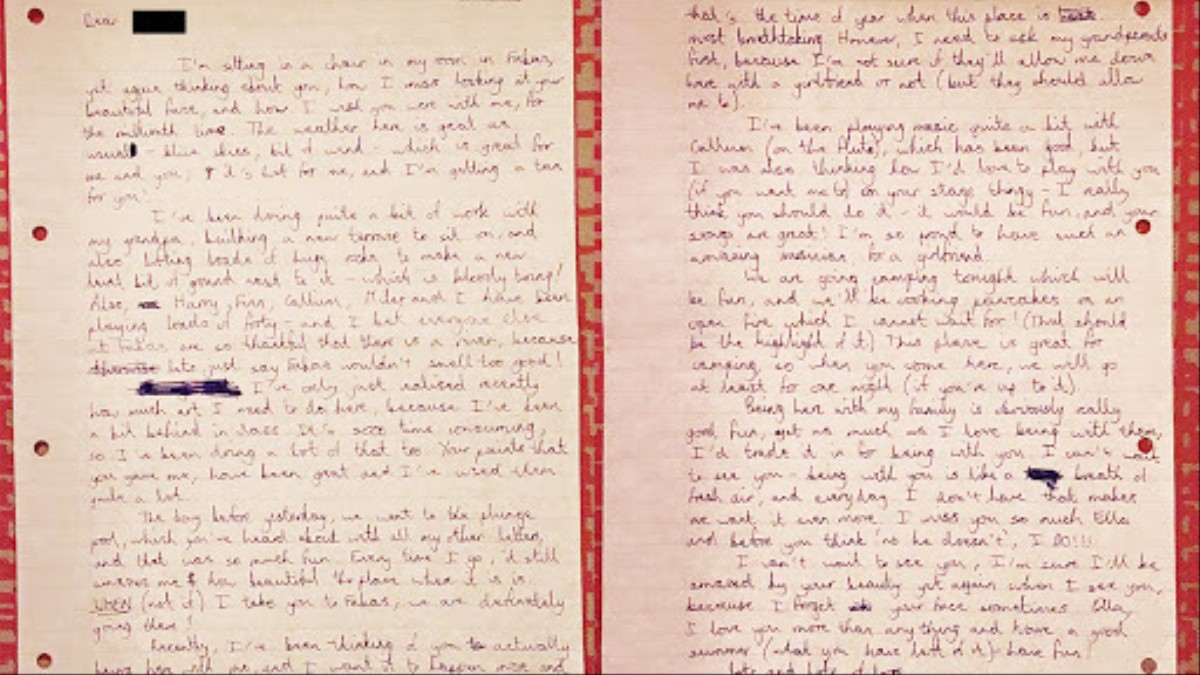 Dear
I'm sitting in a chair in my room in Fakas,
yet again thinking about you, how I miss looking at your
beautiful face, and how I wish you were with me, for
the millionth time. The weather here is great as
usual - blue skies, bit of wind - which is great for
me and you; it's hot for me, and I'm getting a tan
for you!
I've been doing quite a bit of work with
my grandpa, building a new terrace to sit on, and
also lifting loads of huge rocks to make a new
level bit of ground next to it - which is bloody tiring!
Also, Harry, Finn, Callum, Miles and I have been
playing loads of forty - and I bet everyone else
at Fakas are so thankful that there is a river, because
otherwise lets just say Fakas wouldn't smell too good!
I've only just realised recently
how much art I need to do here, because I've been
a bit behind in class. It's sooo time consuming,
so I've been doing a lot of that too. Your paints that
you gave me, have been great and I've used them
quite a lot.
The day before yesterday, we went to the plunge
pool, which you've heard about with all my other letters,
and that was so much fun. Every time I go, it still
amazes me how beautiful the place where it is is.
WHEN (not if) I take you to Fakas, we are definitely
going there!
Recently, I've been thinking of you to actually
being here with me, and I want it to happen more and
that's the time of year when this place is
most breathtaking. However, I need to ask my grandparents
first, because I'm not sure if they'll allow me down
here with a girlfriend or not (but they should allow
me to).
I've been playing music quite a bit with
Callum (on the flute), which has been good, but
I was also thinking how I'd love to play with you
(if you want me to) on your stage thingy - I really
think you should do it - it would be fun, and your
songs are great! I'm so proud to have such an
amazing musician for a girlfriend.
We are going camping tonight which will
be fun, and we'll be cooking pancakes on an
open fire which I cannot wait for! (That should
be the highlight of it.) This place is great for
camping, so when you come here, we will go
at least for one night (if you're up to it).
Being here with my family is obviously really
good fun, yet as much as I love being with them,
I'd trade it in for being with you. I can't wait
to see you - being with you is like a breath of
fresh air, and everyday I don't have that makes
me want it even more. I miss you so much Ella
and before you think 'no he doesn't', I DO!!!
I can't wait to see you, I'm sure I'll be
amazed by your beauty yet again when I see you,
because I forget your face sometimes. Ella,
I love you more than anything and have a good
summer (what you have left of it) - have fun!
lots and lots of love